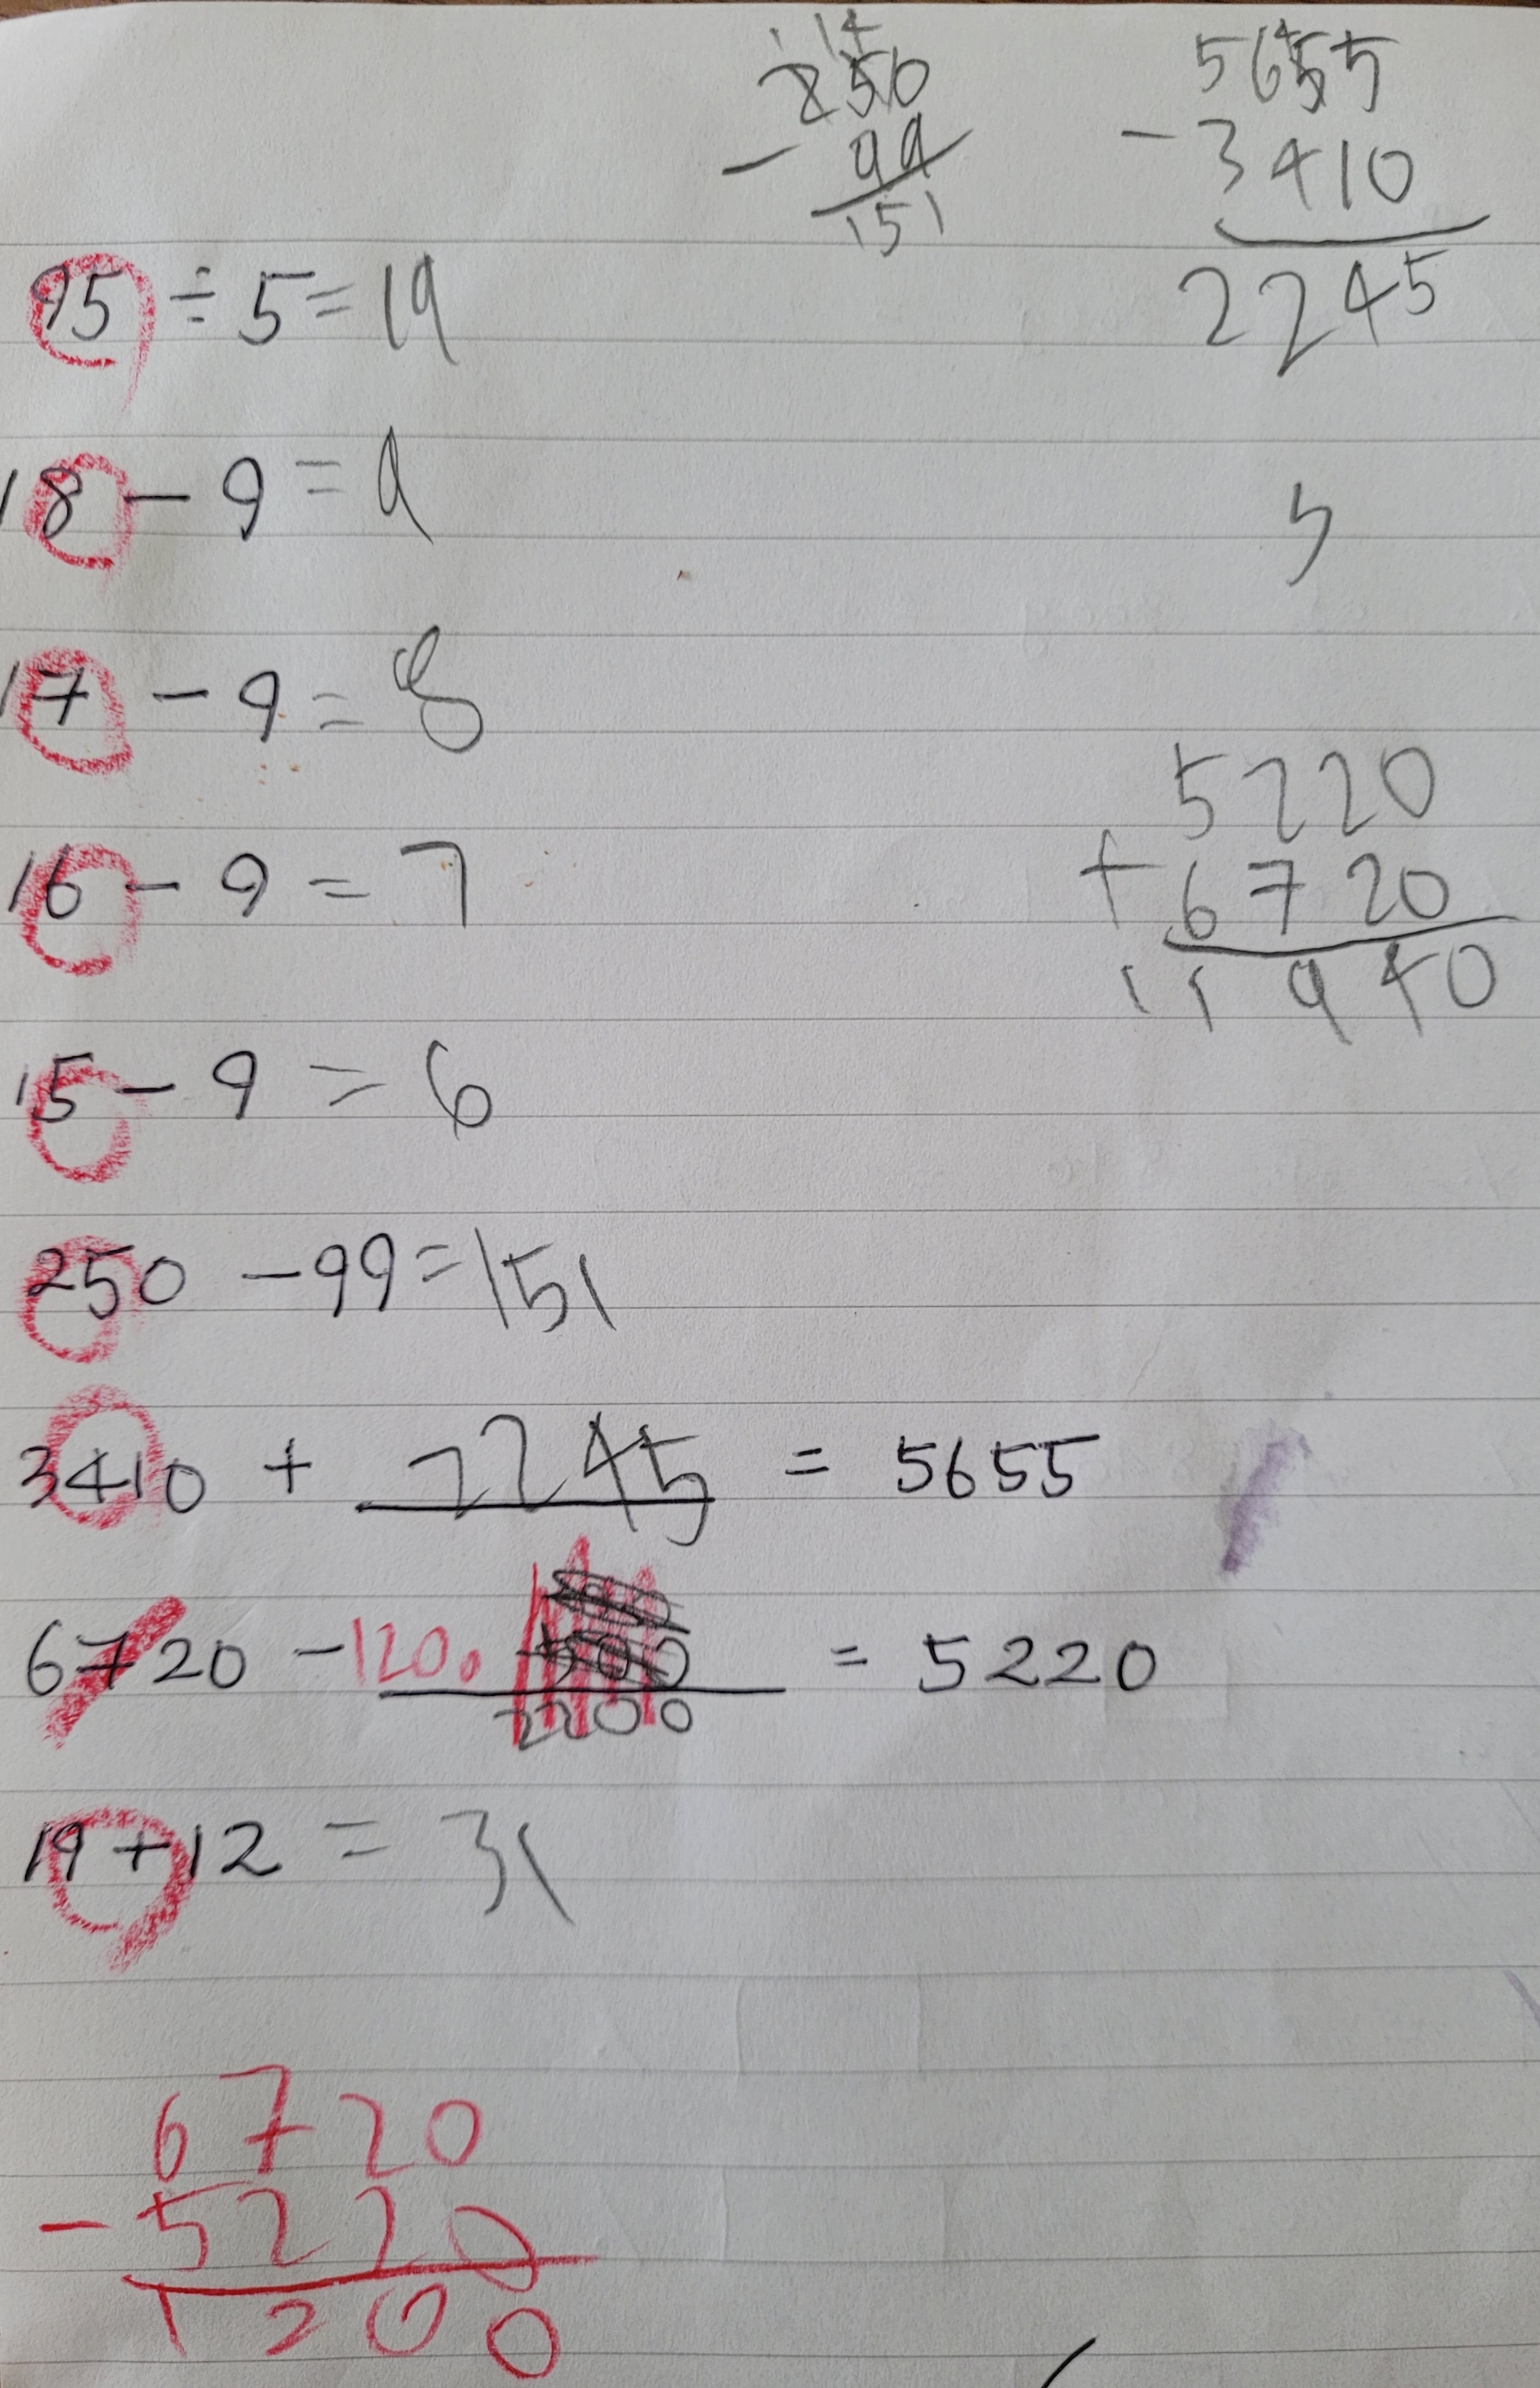 1 14
250
- 99
151
4
5655
- 3410
2245
95 ÷ 5 = 19
18 - 9 = 9
5
17 - 9 = 8
16 - 9 = 7
5220
+ 6720
11940
15 - 9 = 6
250 - 99 = 151
3410 + 2245 = 5655
6720 - 1200 = 5220
2200
19 + 12 = 31
6720
- 5220
1200